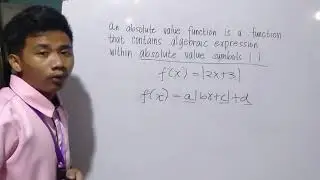 an absolute value function is a function
that contains algebraic expression
within absolute value symbols | |
f(x) = |2x+3|
f(x) = a|bx+c|+d